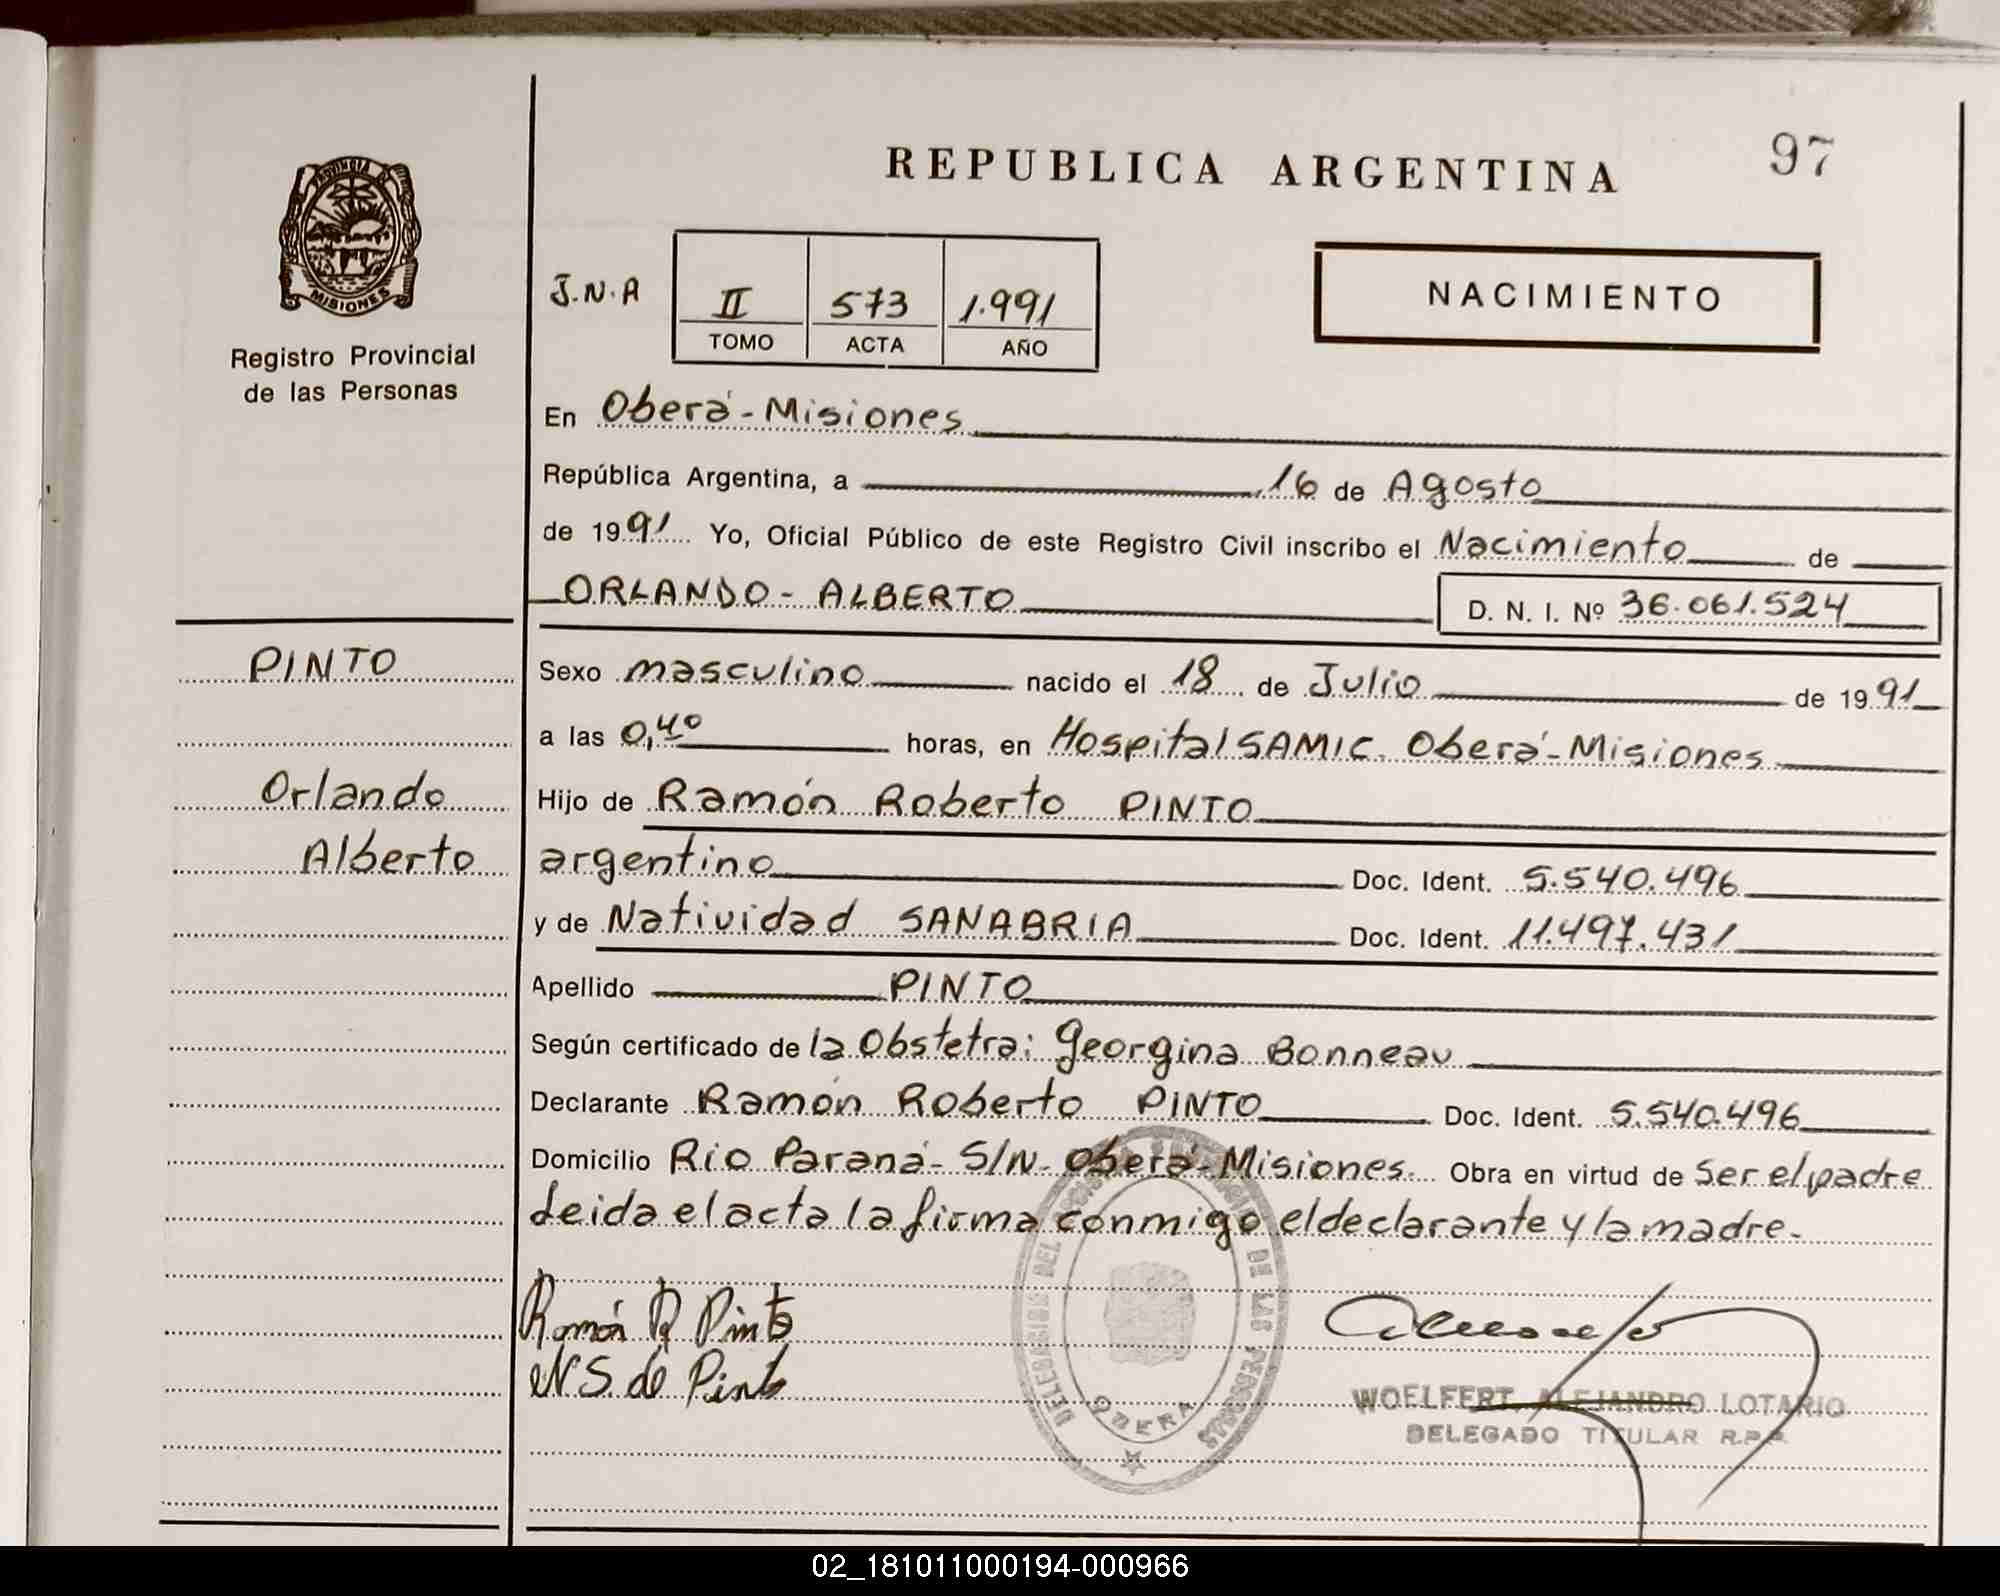 REPUBLICA ARGENTINA
97
PROVINCIA DE
MISIONES
Registro Provincial
de las Personas
J.N.A
II 573 1.991
TOMO ACTA AÑO
NACIMIENTO
En Oberá-Misiones
República Argentina, a 16 de Agosto
de 1991 Yo, Oficial Público de este Registro Civil inscribo el Nacimiento de
ORLANDO-ALBERTO D. N. I. Nº 36.061.524
PINTO
Orlando
Alberto
Sexo masculino nacido el 18 de Julio de 1991
a las 0,40 horas, en Hospital SAMIC. Oberá-Misiones
Hijo de Ramón Roberto PINTO
argentino Doc. Ident. 5.540.496
y de Natividad SANABRIA Doc. Ident. 11.497.431
Apellido PINTO
Según certificado de la Obstetra: Georgina Bonneau
Declarante Ramón Roberto PINTO Doc. Ident. 5.540.496
Domicilio Rio Paraná- S/N- Oberá-Misiones. Obra en virtud de Ser el padre
Leida el acta la firma conmigo el declarante y la madre.
Ramón R Pinto
N S de Pinto
DELEGACION DEL DE LAS PERSONAS
OBERA
WOELFERT, ALEJANDRO LOTARIO
DELEGADO TITULAR R.P.P.
02_181011000194-000966